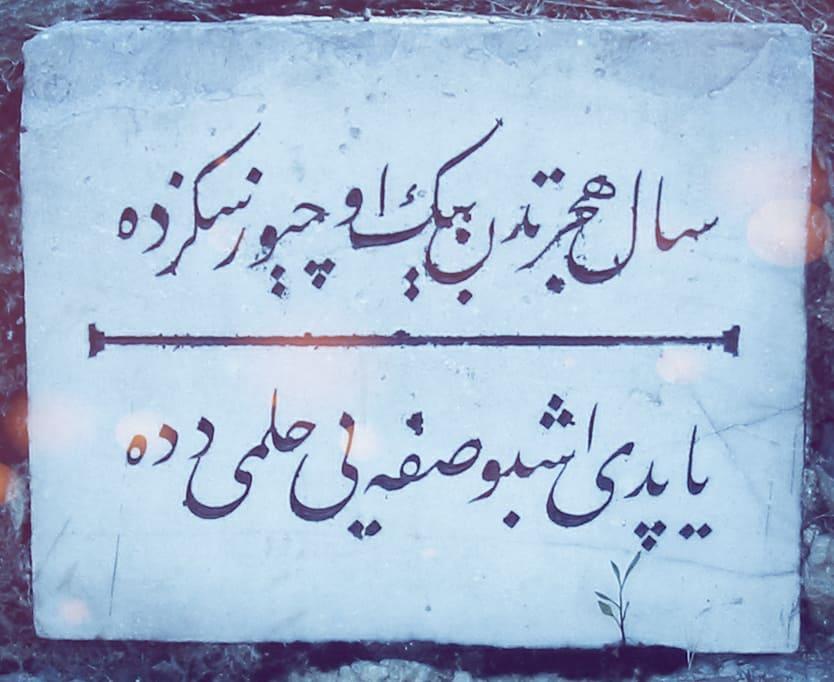 سال هجرتدن بیك اوچیوز سكزده
یاپدی اشبو صفه یی حلمی دده